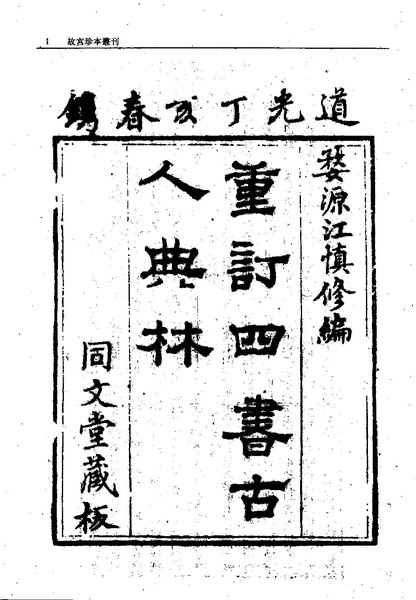 1 故宮珍本叢刊
道光丁亥春鐫
婺源江慎修編
重訂四書古
人典林
同文堂藏板